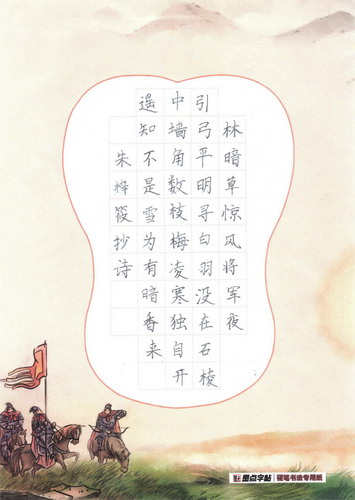 林暗草惊风将军夜
引弓平明寻白羽没在石棱
中墙角数枝梅凌寒独自开
遥知不是雪为有暗香来
朱筱抄诗
墨点字帖 硬笔书法专用纸